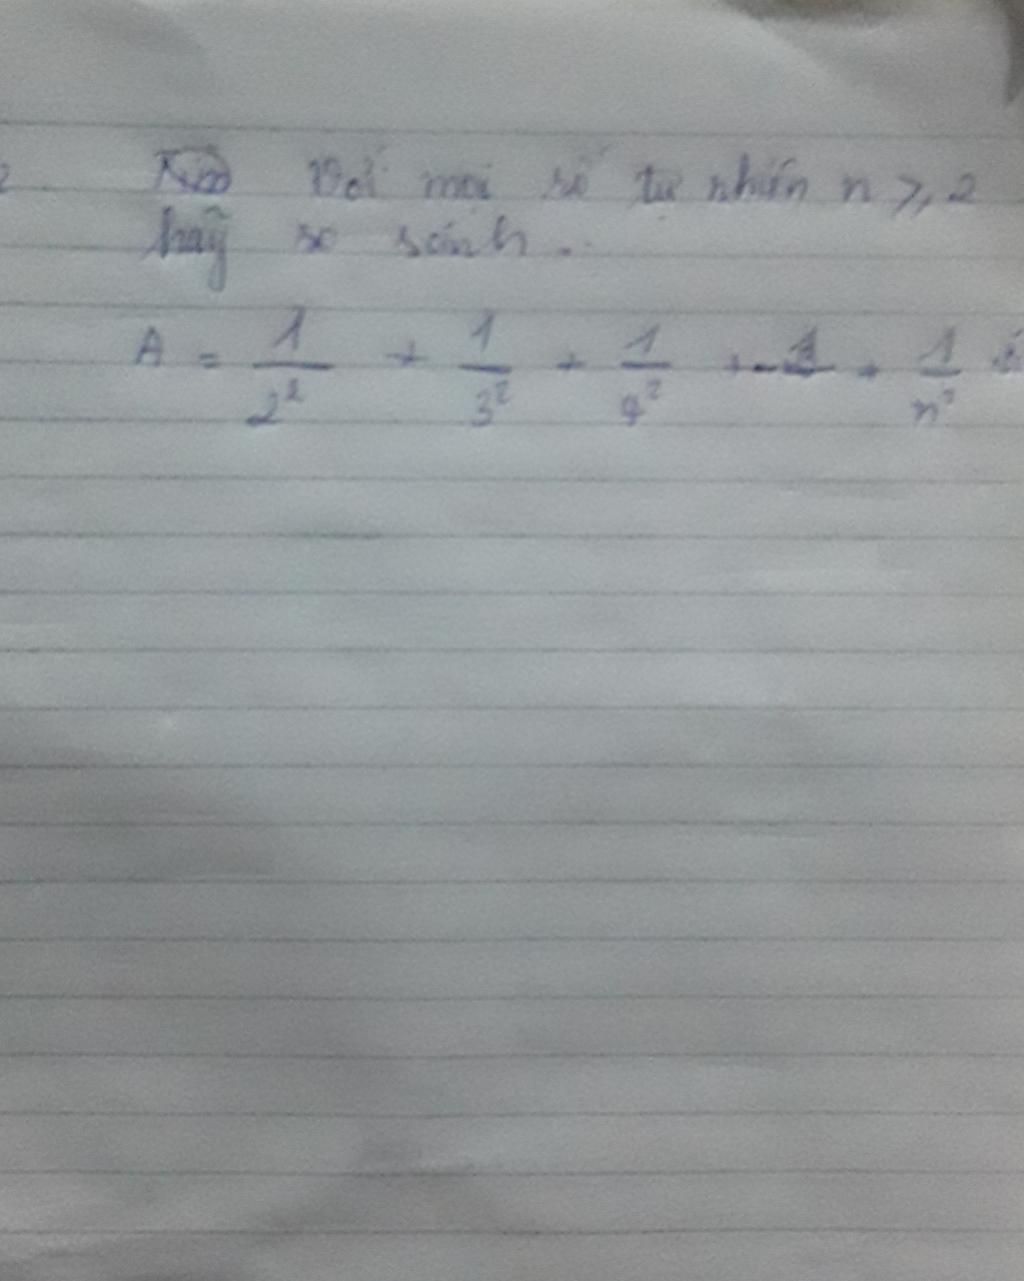 Với mọi số tự nhiên n ≥ 2
hãy so sánh.
A = 1/2² + 1/3² + 1/4² + ... + 1/n²